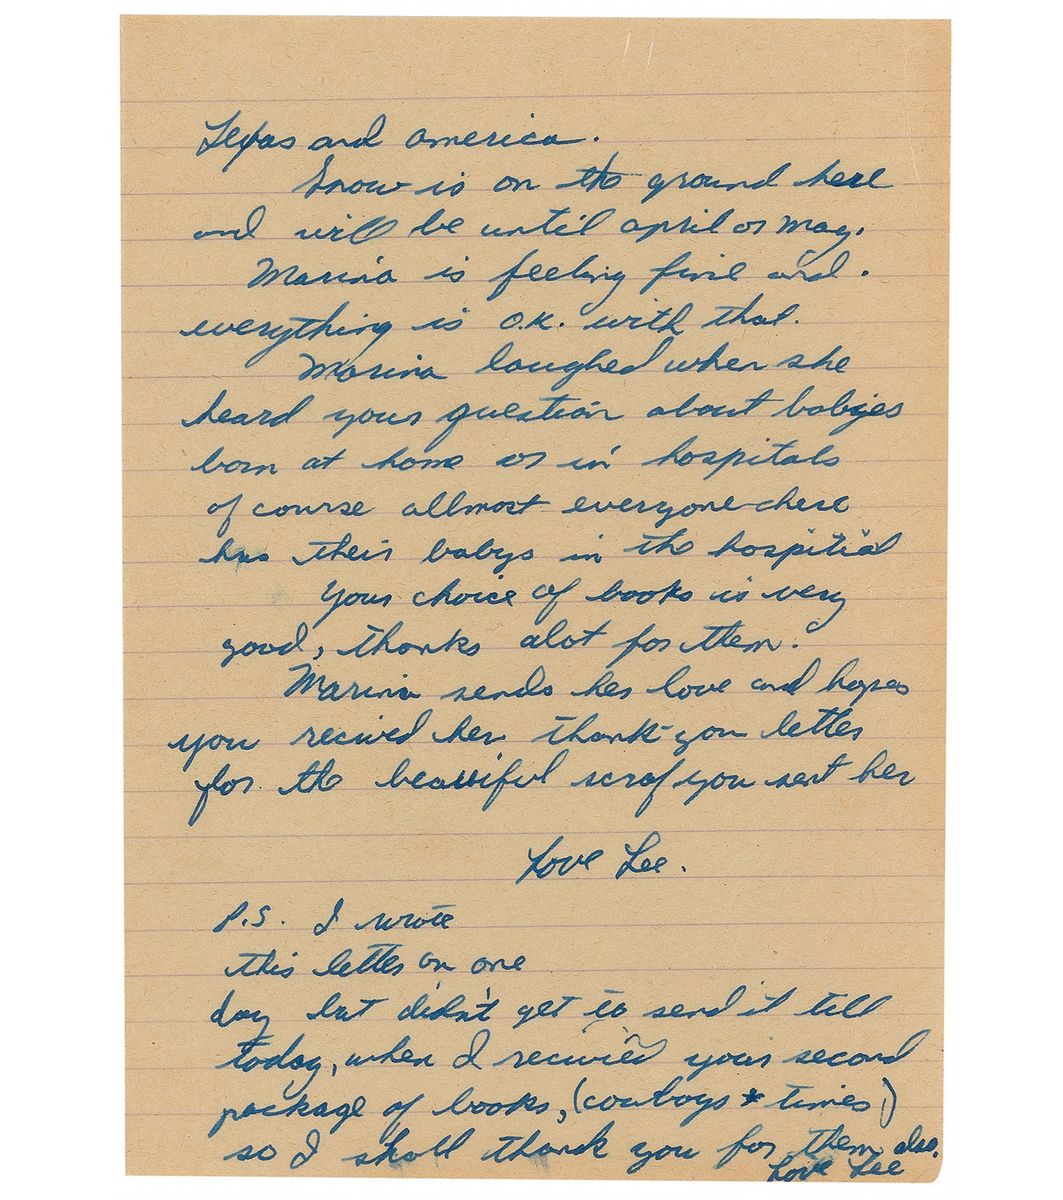 Texas and america.
Snow is on the ground here
and will be until april or may.
Marina is feeling fine and.
everything is O.K. with that.
Marina laughed when she
heard your question about babiyes
born at home or in hospitals
of course allmost everyone here
has their babys in the hospitial
Your choice of books is very
good, thanks alot for them.
Marina sends her love and hopes
you recived her thank-you letter
for the beautiful scraf you sent her
Love Lee.
P.S. I wrote
this letter on one
day but didn't get to send it till
today, when I recived your second
package of books, (cowboys * times)
so I shall thank you for them also.
Love Lee